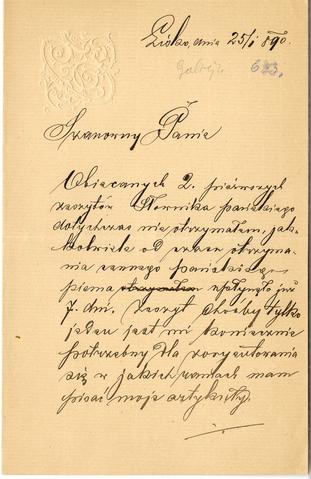 dnia 25/I 890.
623.
Szanowny Panie
Obiecanych 2. pierwszych
zeszytów Słownika pańskiego
dotychczas nie otrzymałem, jak-
kolwiek od czasu otrzyma-
nia cennego pańskiego
pisma otrzymałem upłynęło już
7 dni. Zeszyt choćby tylko
jeden jest mi koniecznie
potrzebny dla zoryentowania
się w jakich ramach mam
pisać moje artykuły.